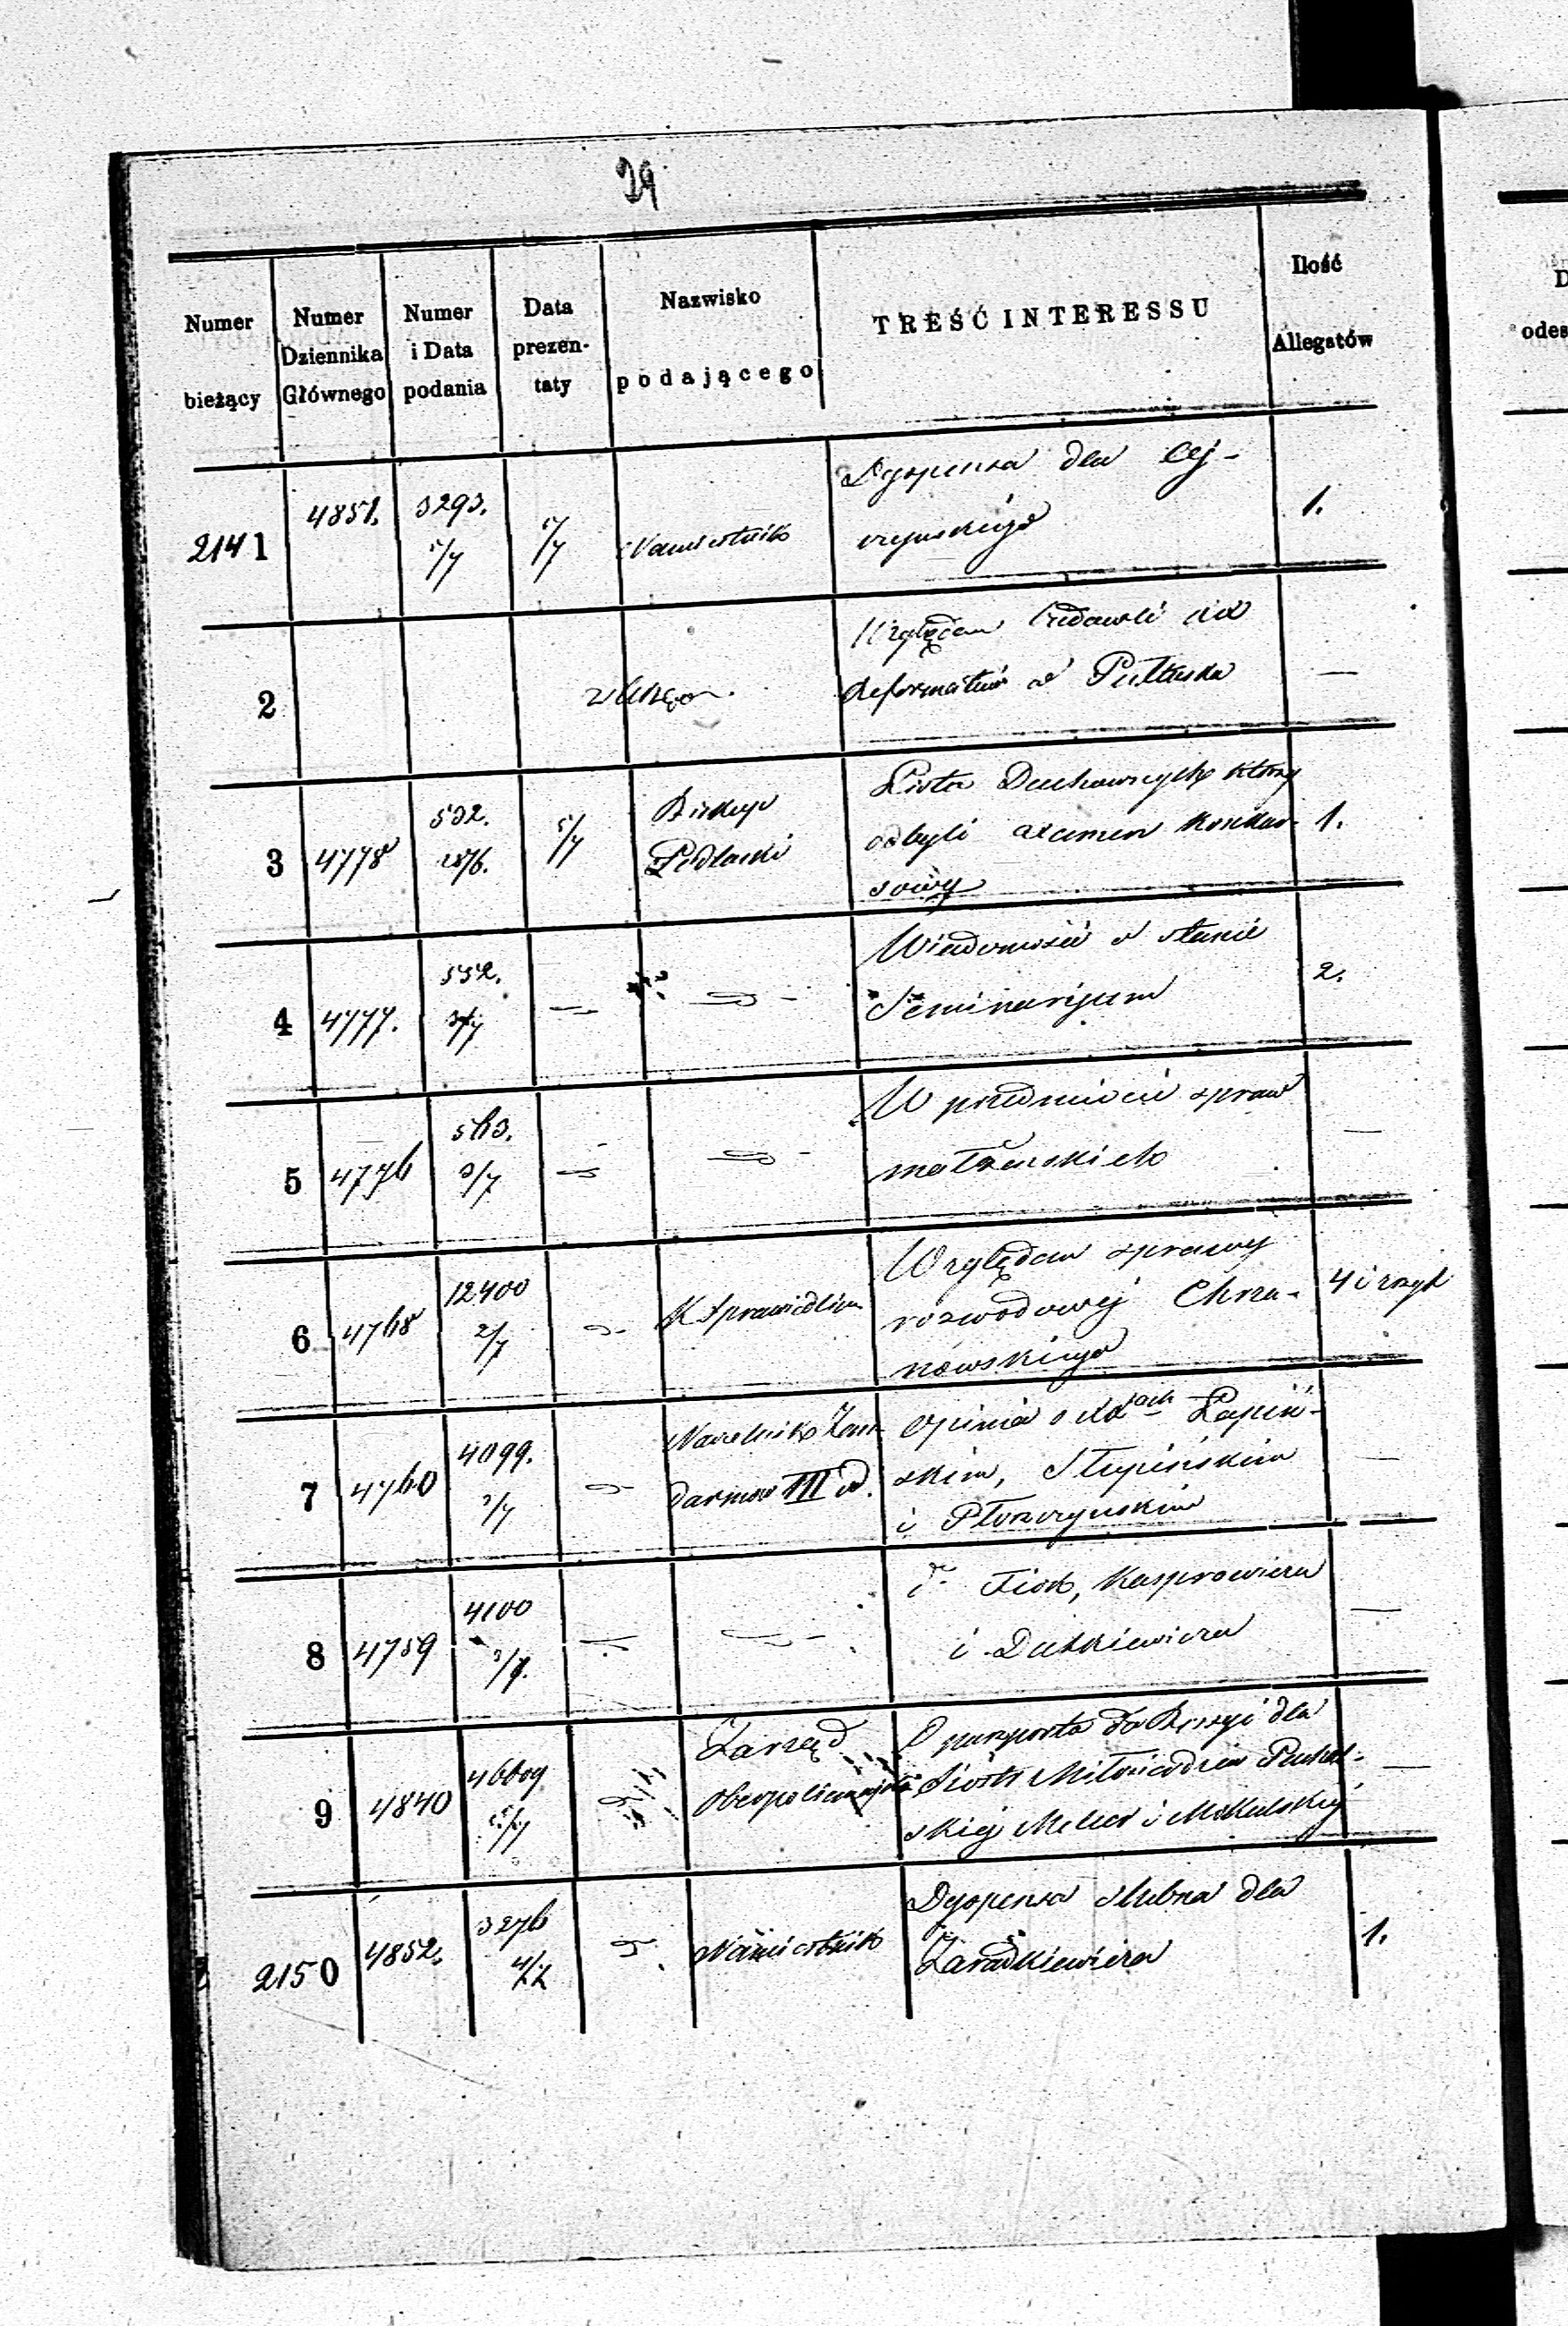 29
Numer bieżący | Numer Dziennika Głównego | Numer i Data podania | Data prezen-taty | Nazwisko podającego | TREŚĆ INTERESSU | Ilość Allegatów
2141 | 4851. | 3293. 5/7 | 5/7 | Namiestnik | Dyspensa dla Cej-
rzyńskiego | 1.
2 | z Urzędu. | Względem
Reformatów w Pułtusku | —
3 | 4778 | 532. 28/6. | 5/7 | Biskup Podlaski | Lista Duchownych którzy
odbyli examen konkur-
sowy | 1.
4 | 4777. | 552. 3/7 | Wiadomość o stanie
Seminaryum | 2.
5 | 4776 | 563. 3/7 | W przedmiocie spraw
małżeńskich | —
6 | 4768 | 12400 2/7 | K Sprawiedliw | Względem sprawy
rozwodowej Chrza-
nowskiego | 4 i
7 | 4760 | 4099. 3/7 | Naczelnik Żan-
darmów III | Opinia o Łapiń-
skim, Stupińskim
i Płoszczyńskim | —
8 | 4759 | 4100 3/7. | Kasprowicza
i Dutkiewicza | —
9 | 4840 | 46609 5/7 | Zarząd
Oberpolicmajstra | O paszporta do Rossyi dla
Sióstr Miłosierdzia Puchal-
skiej i Mikulskiej | —
2150 | 4852. | 3276 4/7 | Namiestnik | Dyspensa ślubna dla
Zaradkiewicza | 1.
D
odes